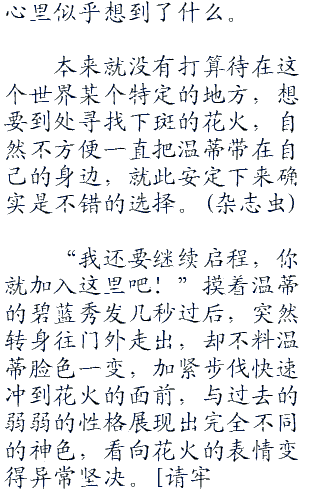 心里似乎想到了什么。
本来就没有打算待在这
个世界某个特定的地方，想
要到处寻找下斑的花火，自
然不方便一直把温蒂带在自
己的身边，就此安定下来确
实是不错的选择。(杂志虫)
“我还要继续启程，你
就加入这里吧！”摸着温蒂
的碧蓝秀发几秒过后，突然
转身往门外走出，却不料温
蒂脸色一变，加紧步伐快速
冲到花火的面前，与过去的
弱弱的性格展现出完全不同
的神色，看向花火的表情变
得异常坚决。[请牢